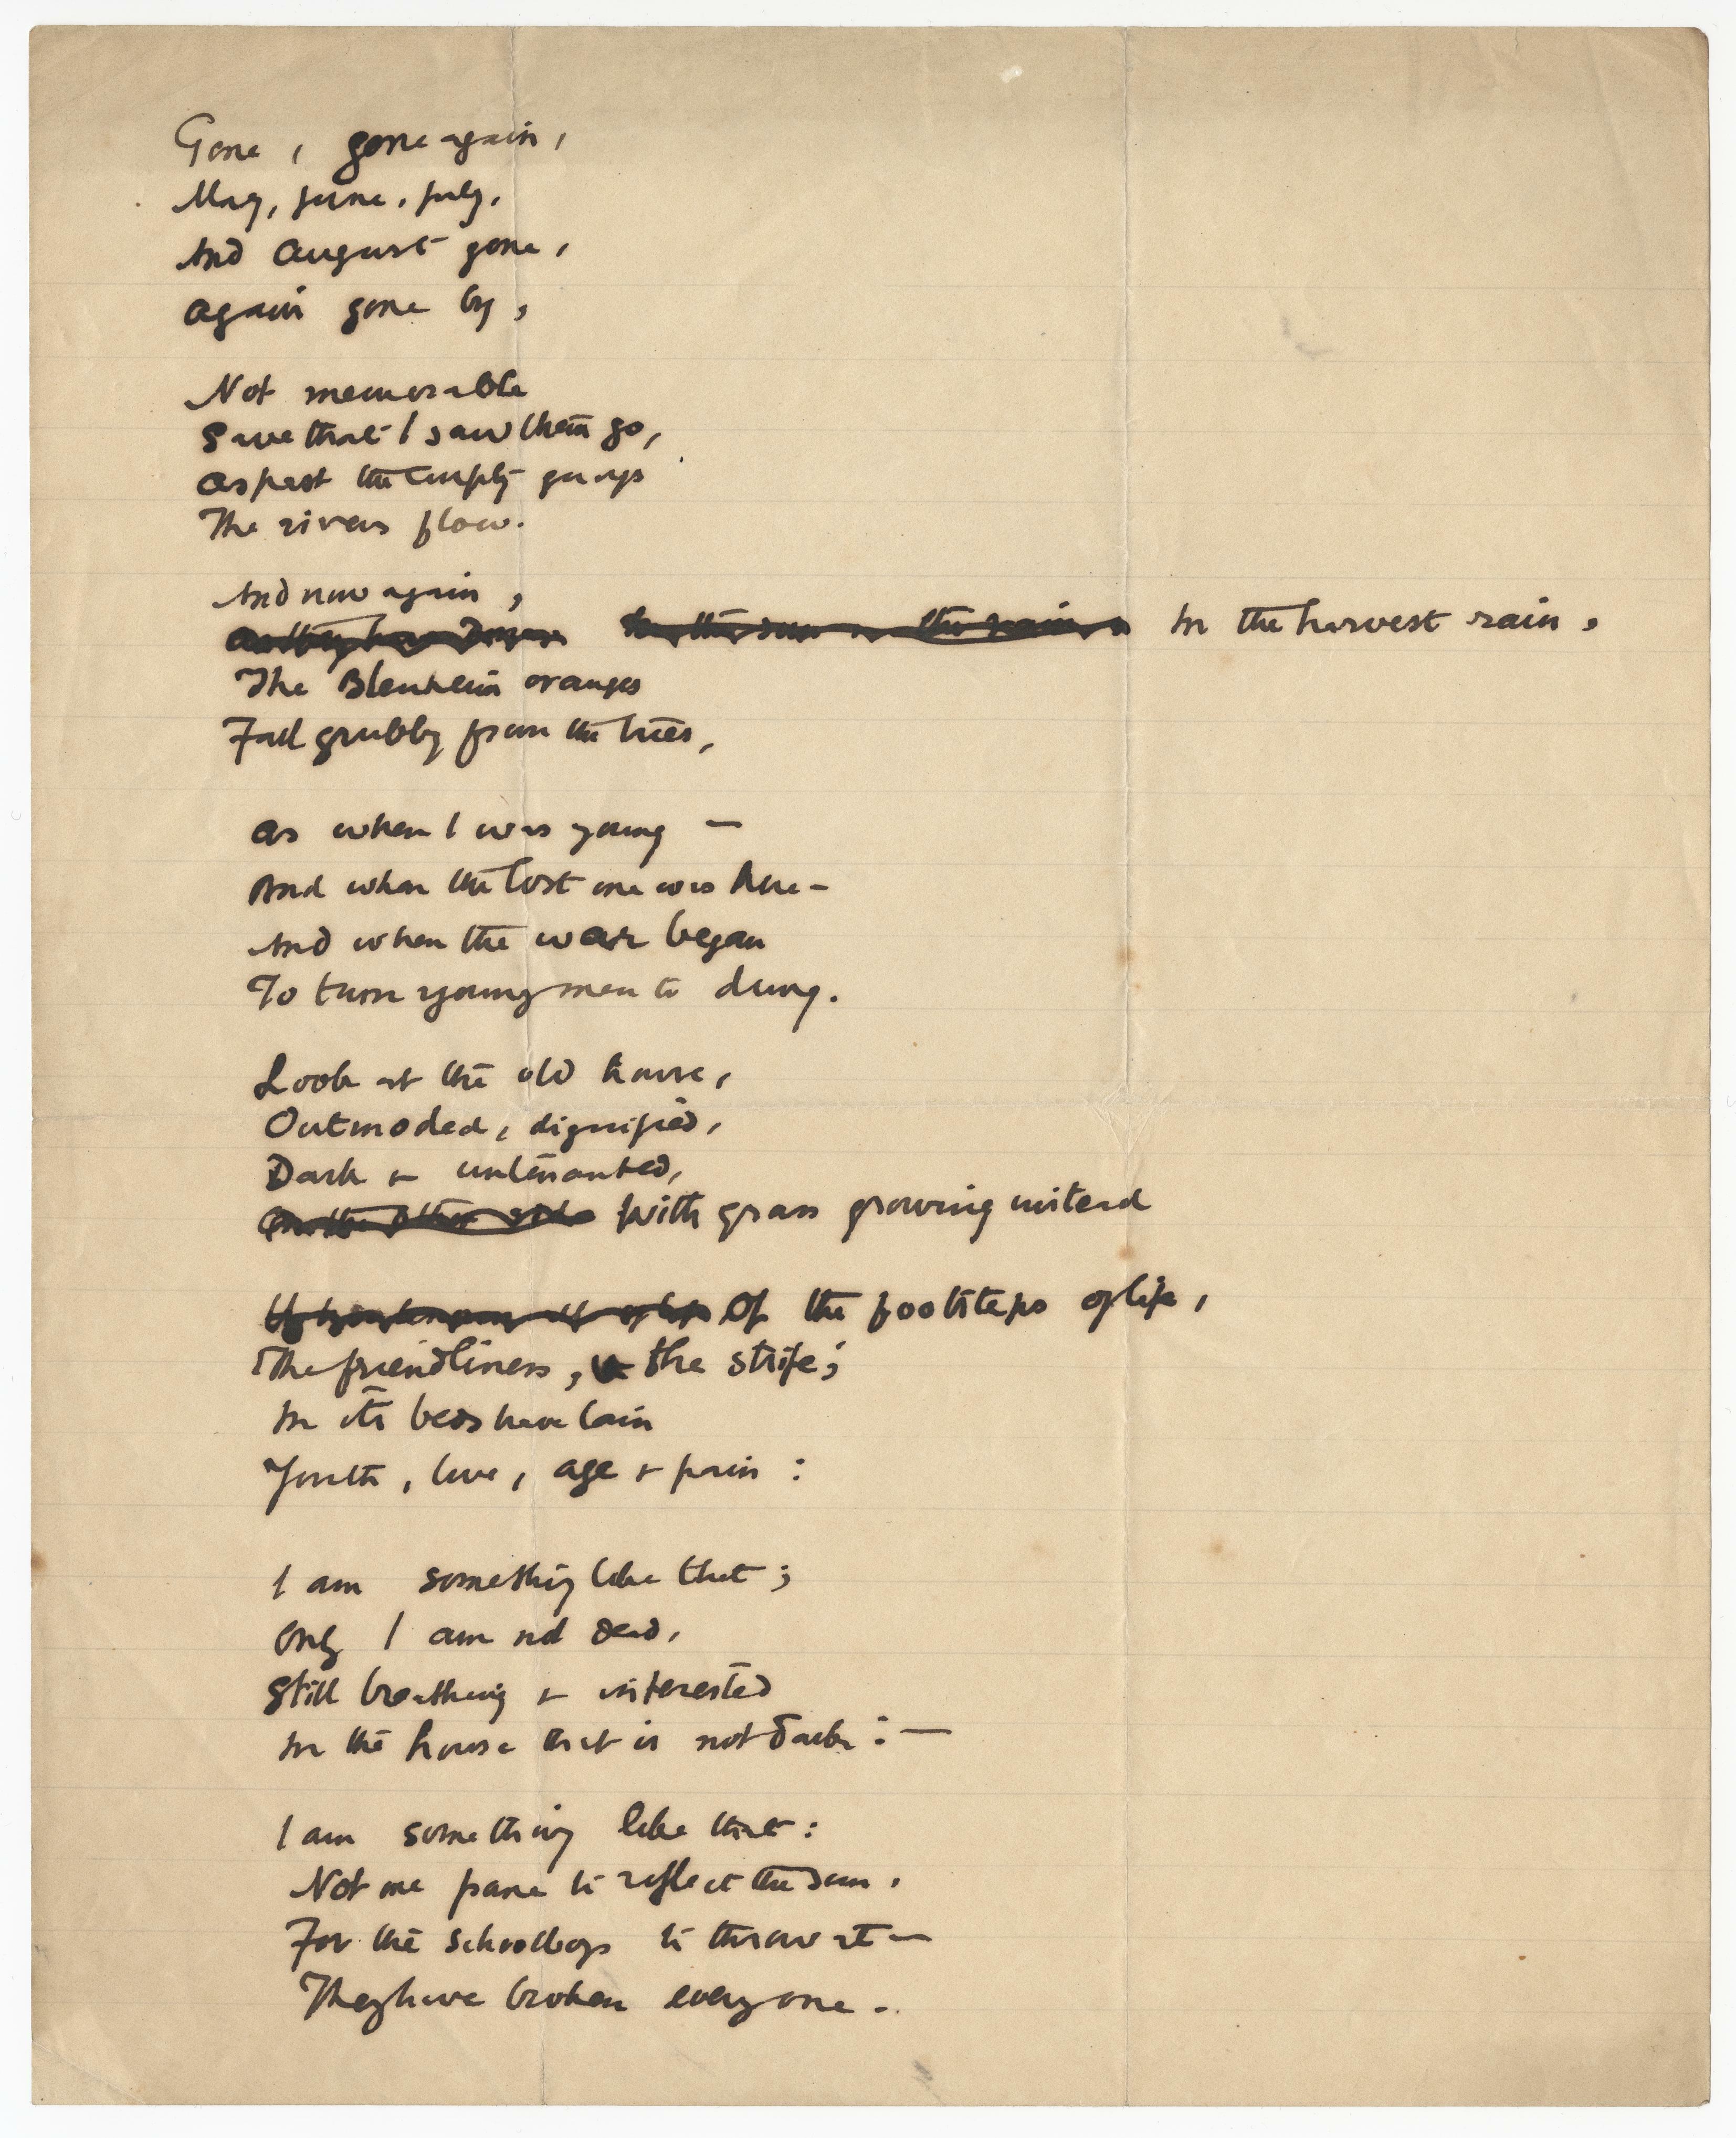 Gone, gone again,
May, June, July,
And August gone,
Again gone by,
Not memorable
Save that I saw them go,
As past the empty quays
The rivers flow.
And now again,
In the harvest rain,
The Blenheim oranges
Fall grubby from the trees,
As when I was young —
And when the lost one was here —
And when the war began
To turn young men to dung.
Look at the old house,
Outmoded, dignified,
Dark & untenanted,
With grass growing instead
Of the footsteps of life,
The friendliness, the strife;
In its beds have lain
Youth, love, age & pain:
I am something like that;
Only I am not dead,
Still breathing & interested
In the house that is not dark: —
I am something like that:
Not one pane to reflect the sun,
For the schoolboys to throw at —
They have broken every one.